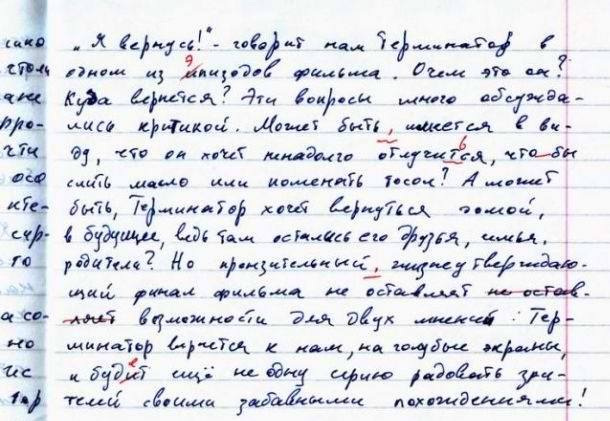 „Я вернусь!" - говорит нам Терминатор в
э
одном из ипизодов фильма. Очем это он?
Куда вернется? Эти вопросы много обсужда-
лись критикой. Может быть, имеется в ви-
ь
ду, что он хочет ненадолго отлучится, что-бы
слить масло или поменять тосол? А может
быть, Терминатор хочет вернуться домой,
в будущее, ведь там остались его друзья, семья,
родители? Но пронзительный, жизнеутверждаю-
щий финал фильма не оставляет не остав-
ляет возможности для двух мнений: Тер-
минатор вернется к нам, на голубые экраны,
е
и будит ещё не одну серию радовать зри-
телей своими забавными похождениями!